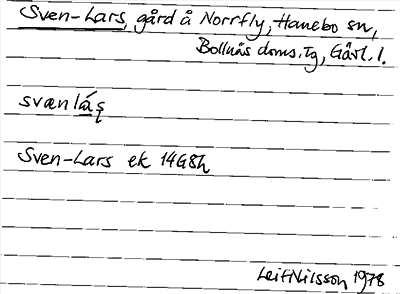 Sven-Lars, gård å Norrfly, Hanebo sn,
Bollnäs doms.tg, Gävl. l.
svænlás̨
Sven-Lars ek 14G8h
Leif Nilsson 1978